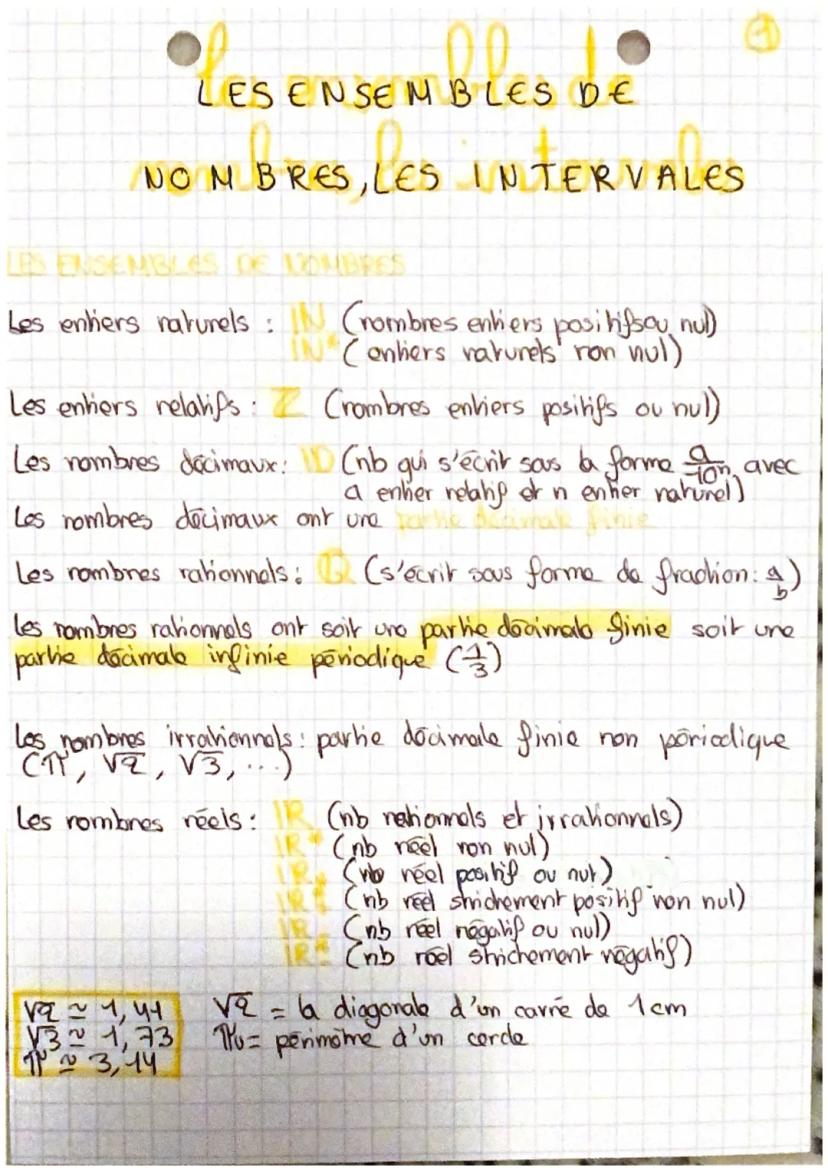 1
LES ENSEMBLES DE
NOMBRES, LES INTERVALES
LES ENSEMBLES DE NOMBRES
Les entiers naturels : IN (nombres entiers positifs ou nul)
IN* (entiers naturels non nul)
Les entiers relatifs : Z (nombres entiers positifs ou nul)
Les nombres décimaux : ID (nb qui s'écrit sous la forme a/10ⁿ, avec
a entier relatif et n entier naturel)
Les nombres décimaux ont une partie décimale finie
Les nombres rationnels : Q (s'écrit sous forme de fraction : a/b)
Les nombres rationnels ont soit une partie décimale finie soit une
partie décimale infinie périodique (1/3)
Les nombres irrationnels : partie décimale finie non périodique
(π, √2, √3, ...)
Les nombres réels : IR (nb rationnels et irrationnels)
IR* (nb réel non nul)
IR+ (nb réel positif ou nul)
IR*+ (nb réel strichement positif non nul)
IR- (nb réel négatif ou nul)
IR*- (nb réel strichement négatif)
√2 ≃ 1,41 √2 = la diagonale d'un carré de 1cm
√3 ≃ 1,73 = périmètre d'un cercle
π ≃ 3,14